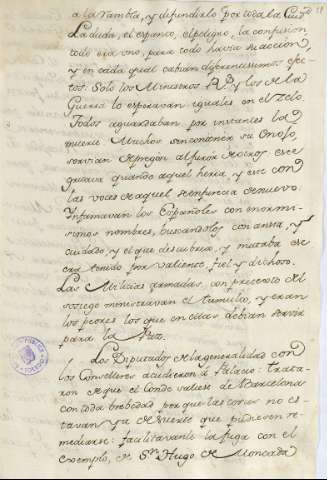 a la rambla, y difundirlo por toda la Ciud.d
La duda, el espanto, el peligro, la confusion
todo era uno, para todo havia su accion,
y en cada qual cabian diferentissimos efec
tos. Solo los Ministros R.s y los de la
Guerra lo esperavan iguales en el zelo.
Todos aguardaban por instantes la
muerte Muchos sin contener su enojo,
servian de pregon al furor de otros este
gritava quando aquel heria, y este con
las voces de aquel se enfurecia de nuevo.
Infamavan los Españoles con enormis
simos nombres, buscandolos con ansia, y
cuidado, y el que descubria, y mataba ese
era tenido por valiente, fiel y dichoso.
Las Milicias armadas, con pretexto de
sosiego ministravan el tumulto, y eran
los peores los que en citas debian servir
para la Paz.
Los Diputados de la generalidad con
los Conselleres acudieron a Palacio: trata
ron de que el Conde saliese de Barcelona
con toda brebedad por que las cosas no es
tavan ya de suerte que pudiesen re
mediarse: facilitavanle la fuga con el
exemplo, de Dn Hugo de Moncada